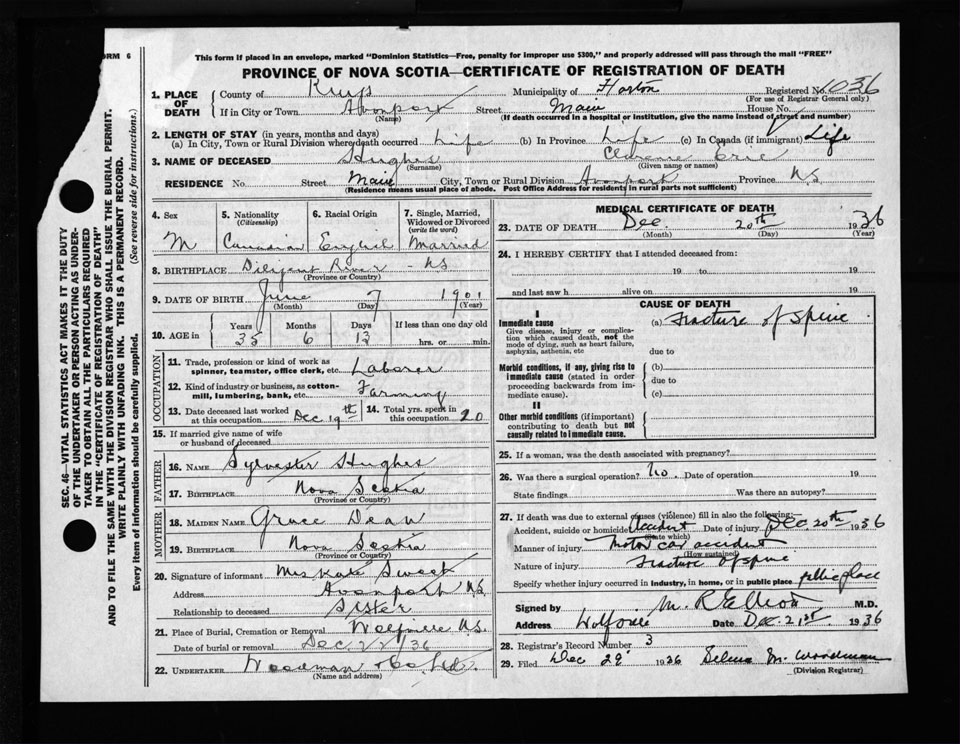 ORM 6
This form if placed in an envelope, marked "Dominion Statistics—Free, penalty for improper use $300," and properly addressed will pass through the mail "FREE"
PROVINCE OF NOVA SCOTIA—CERTIFICATE OF REGISTRATION OF DEATH
1. PLACE OF DEATH County of Kings Municipality of Horton Registered No. 1036
(For use of Registrar General only)
If in City or Town Avonport Street Main House No.
(Name) (If death occurred in a hospital or institution, give the name instead of street and number)
2. LENGTH OF STAY (in years, months and days)
(a) In City, Town or Rural Division where death occurred Life (b) In Province Life (c) In Canada (if immigrant) Life
3. NAME OF DECEASED Hughes Clarence Eric
(Surname) (Given name or names)
RESIDENCE No. Street Main City, Town or Rural Division Avonport Province NS
(Residence means usual place of abode. Post Office Address for residents in rural parts not sufficient)
4. Sex 5. Nationality (Citizenship) 6. Racial Origin 7. Single, Married, Widowed or Divorced (write the word)
M Canadian English Married
8. BIRTHPLACE Diligent River - NS
(Province or Country)
9. DATE OF BIRTH June 7 1901
(Month) (Day) (Year)
10. AGE in Years Months Days If less than one day old
35 6 13 hrs. or min.
OCCUPATION
11. Trade, profession or kind of work as spinner, teamster, office clerk, etc. Laborer
12. Kind of industry or business, as cotton-mill, lumbering, bank, etc. Farming
13. Date deceased last worked at this occupation Dec 19th 14. Total yrs. spent in this occupation 20
15. If married give name of wife or husband of deceased
FATHER
16. NAME Sylvester Hughes
17. BIRTHPLACE Nova Scotia
(Province or Country)
MOTHER
18. MAIDEN NAME Grace Dean
19. BIRTHPLACE Nova Scotia
(Province or Country)
20. Signature of informant Mrs Kate Sweet
Address Avonport NS
Relationship to deceased Sister
21. Place of Burial, Cremation or Removal Wolfville N.S.
Date of burial or removal Dec 22/36
22. UNDERTAKER Woodman & Co Ltd.
(Name and address)
MEDICAL CERTIFICATE OF DEATH
23. DATE OF DEATH Dec. 20th 1936
(Month) (Day) (Year)
24. I HEREBY CERTIFY that I attended deceased from:
19 to 19
and last saw h alive on 19
CAUSE OF DEATH
I
Immediate cause (a) Fracture of Spine
Give disease, injury or complication which caused death, not the mode of dying, such as heart failure, asphyxia, asthenia, etc
due to
Morbid conditions, if any, giving rise to immediate cause (stated in order proceeding backwards from immediate cause).
(b)
due to
(c)
II
Other morbid conditions (if important) contributing to death but not causally related to immediate cause.
25. If a woman, was the death associated with pregnancy?
26. Was there a surgical operation? No. Date of operation 19
State findings Was there an autopsy?
27. If death was due to external causes (violence) fill in also the following:
Accident, suicide or homicide? Accident Date of injury Dec 20th 1936
(State which)
Manner of injury Motor car accident
(How sustained)
Nature of injury Fracture of spine
Specify whether injury occurred in industry, in home, or in public place public place
Signed by M. R. Elliott M.D.
Address Wolfville Date Dec. 21st 1936
28. Registrar's Record Number 3
29. Filed Dec 29 1936 Selma M. Woodman
(Division Registrar)
SEC. 46—VITAL STATISTICS ACT MAKES IT THE DUTY
OF THE UNDERTAKER OR PERSON ACTING AS UNDER-
TAKER TO OBTAIN ALL THE PARTICULARS REQUIRED
IN THE "CERTIFICATE OF REGISTRATION OF DEATH"
AND TO FILE THE SAME WITH THE DIVISION REGISTRAR WHO SHALL ISSUE THE BURIAL PERMIT.
WRITE PLAINLY WITH UNFADING INK. THIS IS A PERMANENT RECORD.
Every item of information should be carefully supplied. (See reverse side for instructions.)